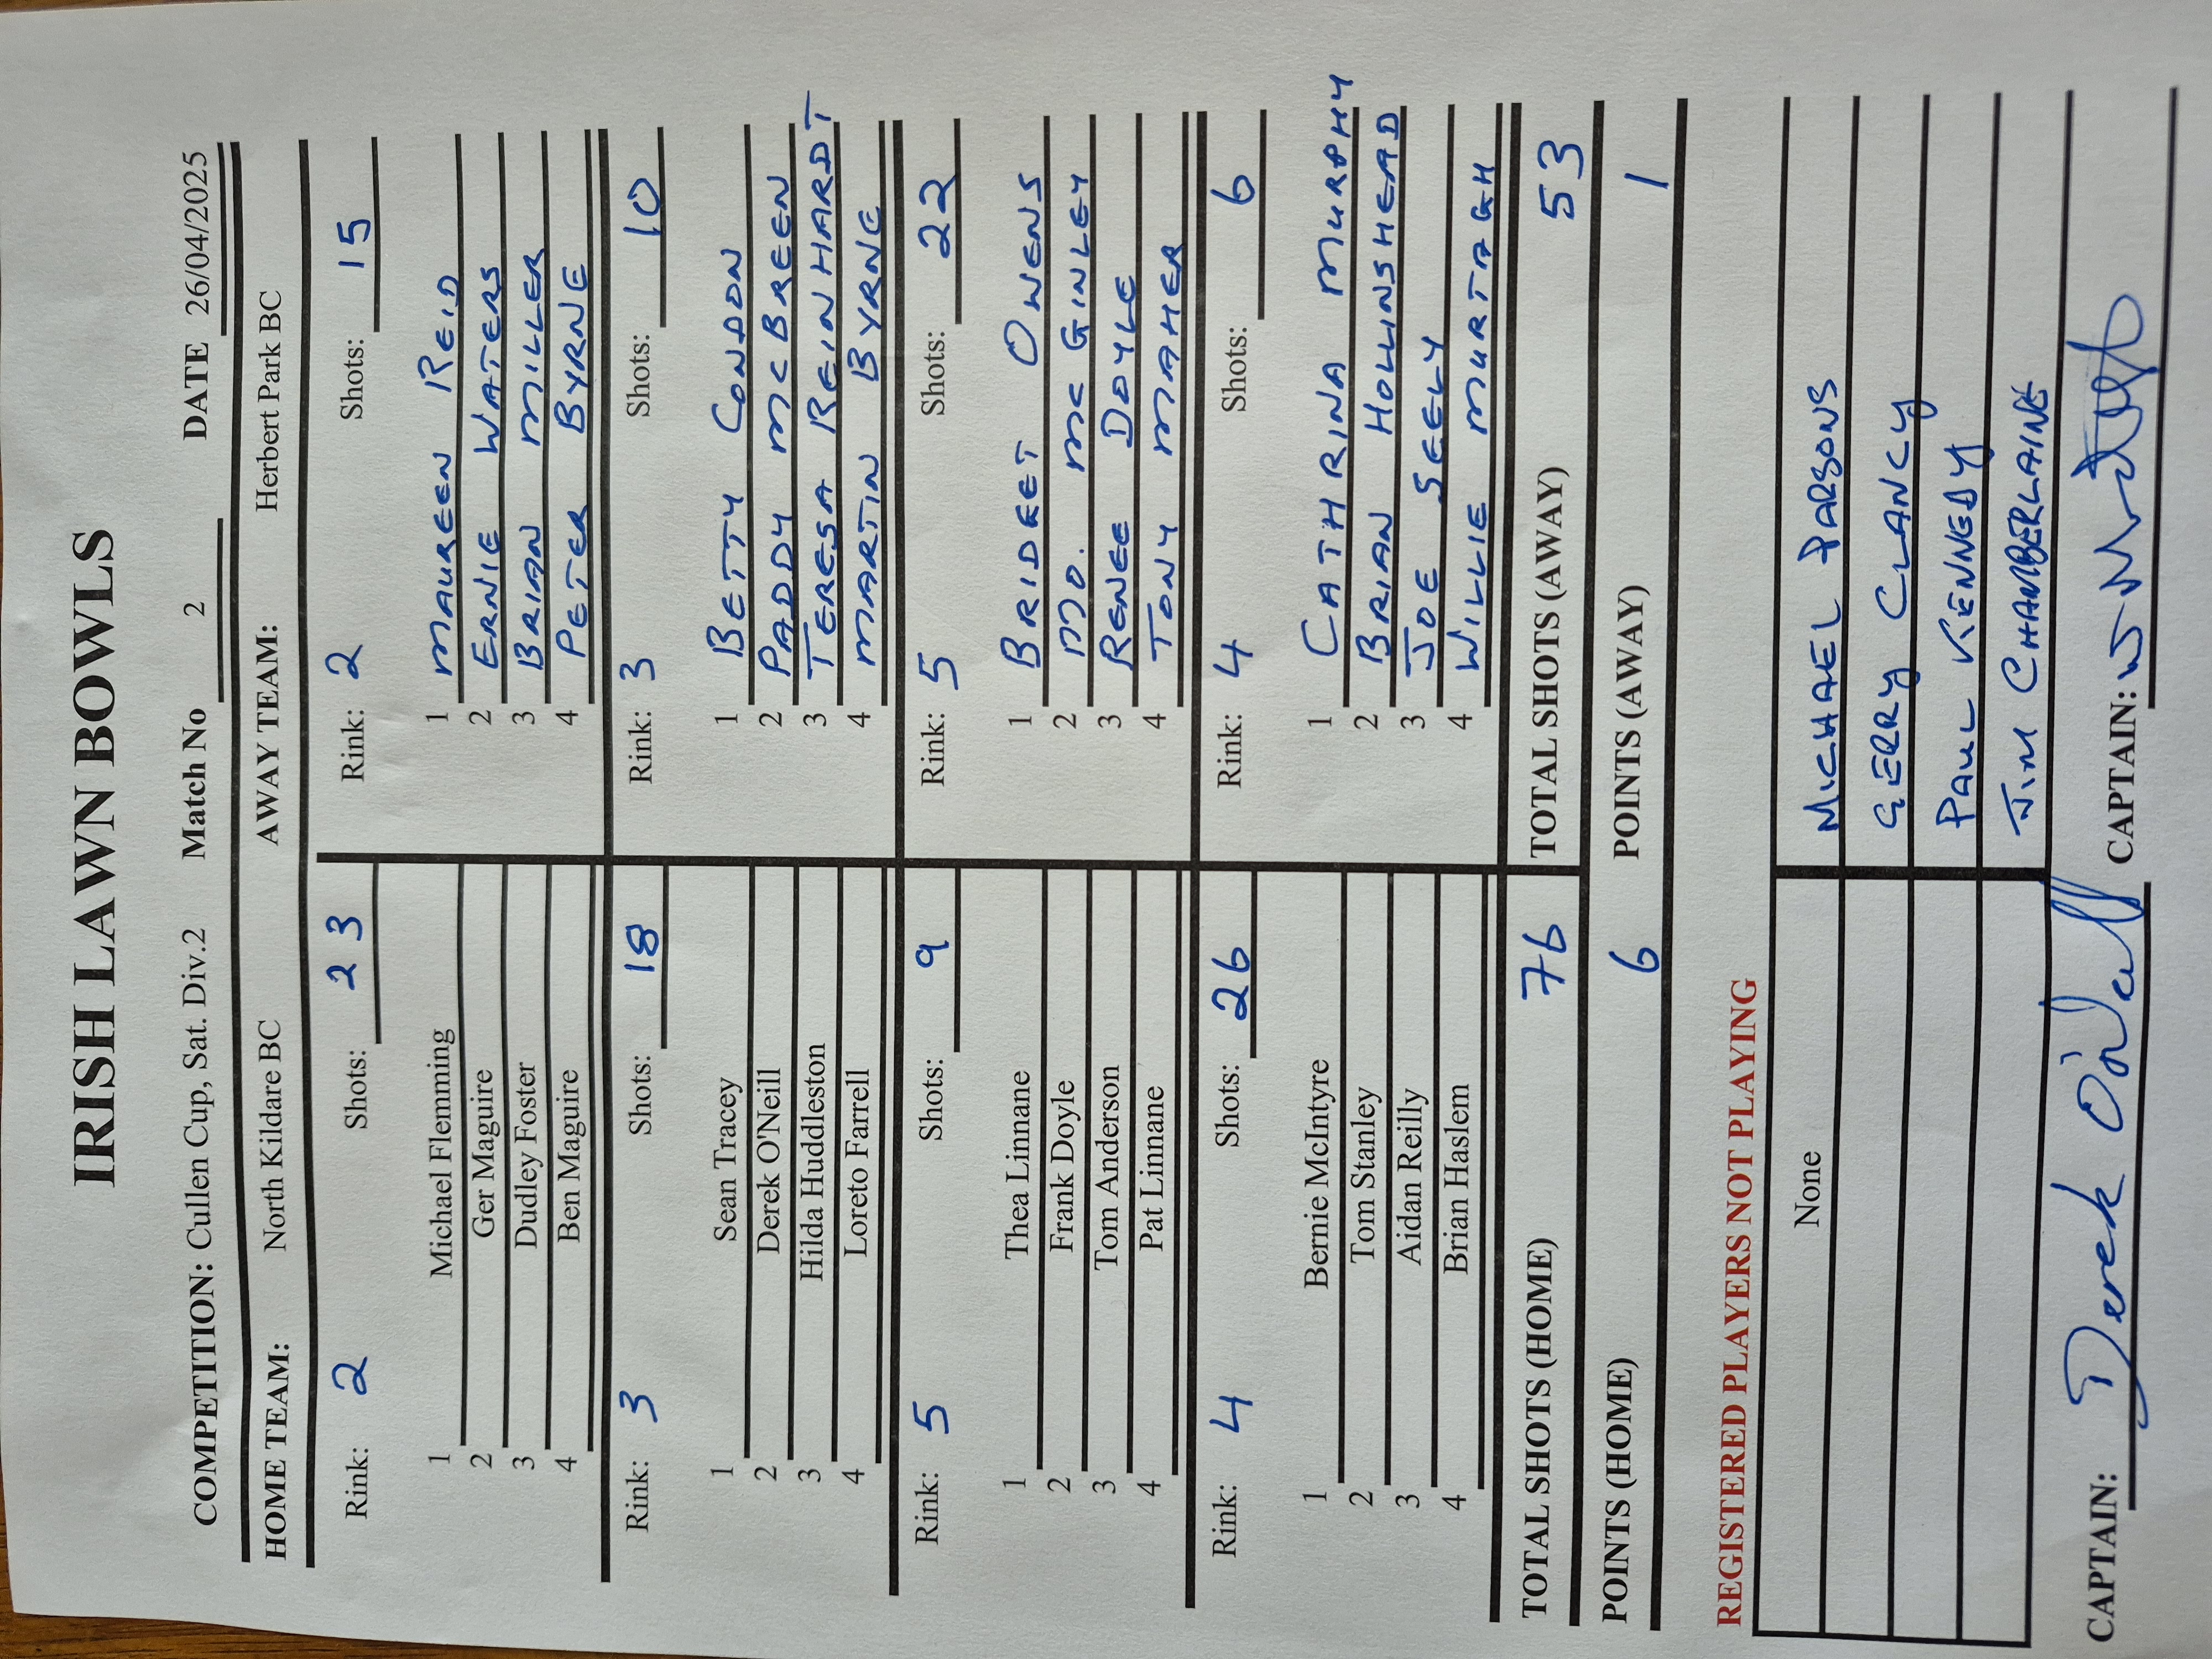 IRISH LAWN BOWLS
COMPETITION: Cullen Cup, Sat. Div.2 Match No 2 DATE 26/04/2025
HOME TEAM: North Kildare BC AWAY TEAM: Herbert Park BC
Rink: 2 Shots: 23 Rink: 2 Shots: 15
1 Michael Flemming 1 MAUREEN REID
2 Ger Maguire 2 ERNIE WATERS
3 Dudley Foster 3 BRIAN MILLER
4 Ben Maguire 4 PETER BYRNE
Rink: 3 Shots: 18 Rink: 3 Shots: 10
1 Sean Tracey 1 BETTY CONDON
2 Derek O'Neill 2 PADDY MCBREEN
3 Hilda Huddleston 3 TERESA REINHARDT
4 Loreto Farrell 4 MARTIN BYRNE
Rink: 5 Shots: 9 Rink: 5 Shots: 22
1 Thea Linnane 1 BRIDGET OWENS
2 Frank Doyle 2 MO. MC GINLEY
3 Tom Anderson 3 RENEE DOYLE
4 Pat Linnane 4 TONY MAHER
Rink: 4 Shots: 26 Rink: 4 Shots: 6
1 Bernie McIntyre 1 CATHRINA MURPHY
2 Tom Stanley 2 BRIAN HOLLINSHEAD
3 Aidan Reilly 3 JOE SEELY
4 Brian Haslem 4 WILLIE MURTAGH
TOTAL SHOTS (HOME) 76 TOTAL SHOTS (AWAY) 53
POINTS (HOME) 6 POINTS (AWAY) 1
REGISTERED PLAYERS NOT PLAYING
None MICHAEL PARSONS
GERRY CLANCY
PAUL KENNEDY
JIM CHAMBERLAINE
CAPTAIN: Derek O'Neill CAPTAIN: